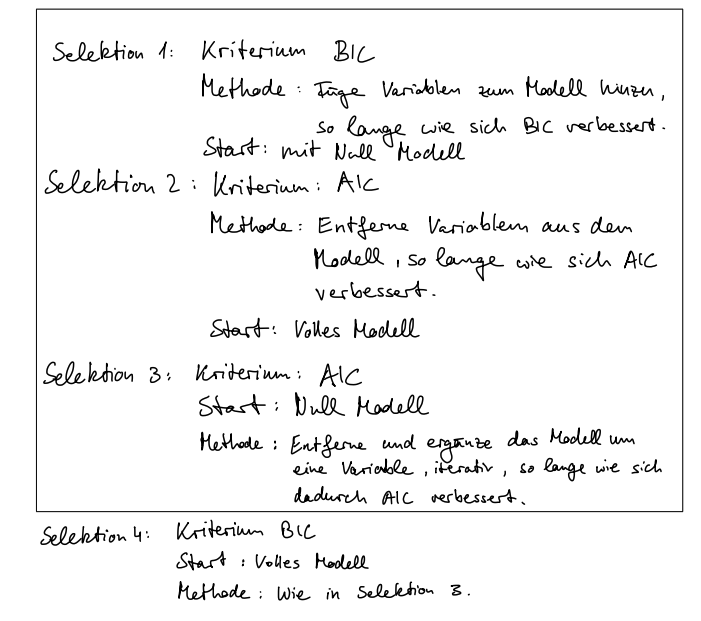 Selektion 1: Kriterium BIC
Methode: Füge Variablen zum Modell hinzu,
so lange wie sich BIC verbessert.
Start: mit Null Modell
Selektion 2: Kriterium: AIC
Methode: Entferne Variablen aus dem
Modell, so lange wie sich AIC
verbessert.
Start: Volles Modell
Selektion 3: Kriterium: AIC
Start: Null Modell
Methode: Entferne und ergänze das Modell um
eine Variable, iterativ, so lange wie sich
dadurch AIC verbessert.
Selektion 4: Kriterium BIC
Start: Volles Modell
Methode: Wie in Selektion 3.